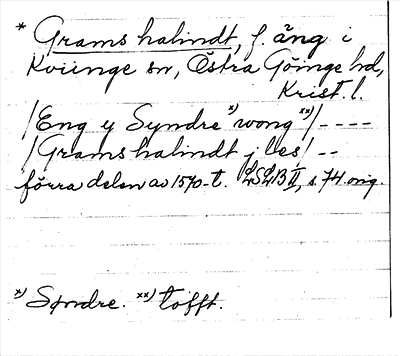 * Gramshalindt, f. äng i
Kviinge sn, Östra Göinge hd,
Krist. l.
/Eng y Syndre x) wong xx)/ ----
/Gramshalindt j Ves/ --
förra delen av 1570-t. LSLB II, s. 74 orig.
x) Søndre. xx) tofft.